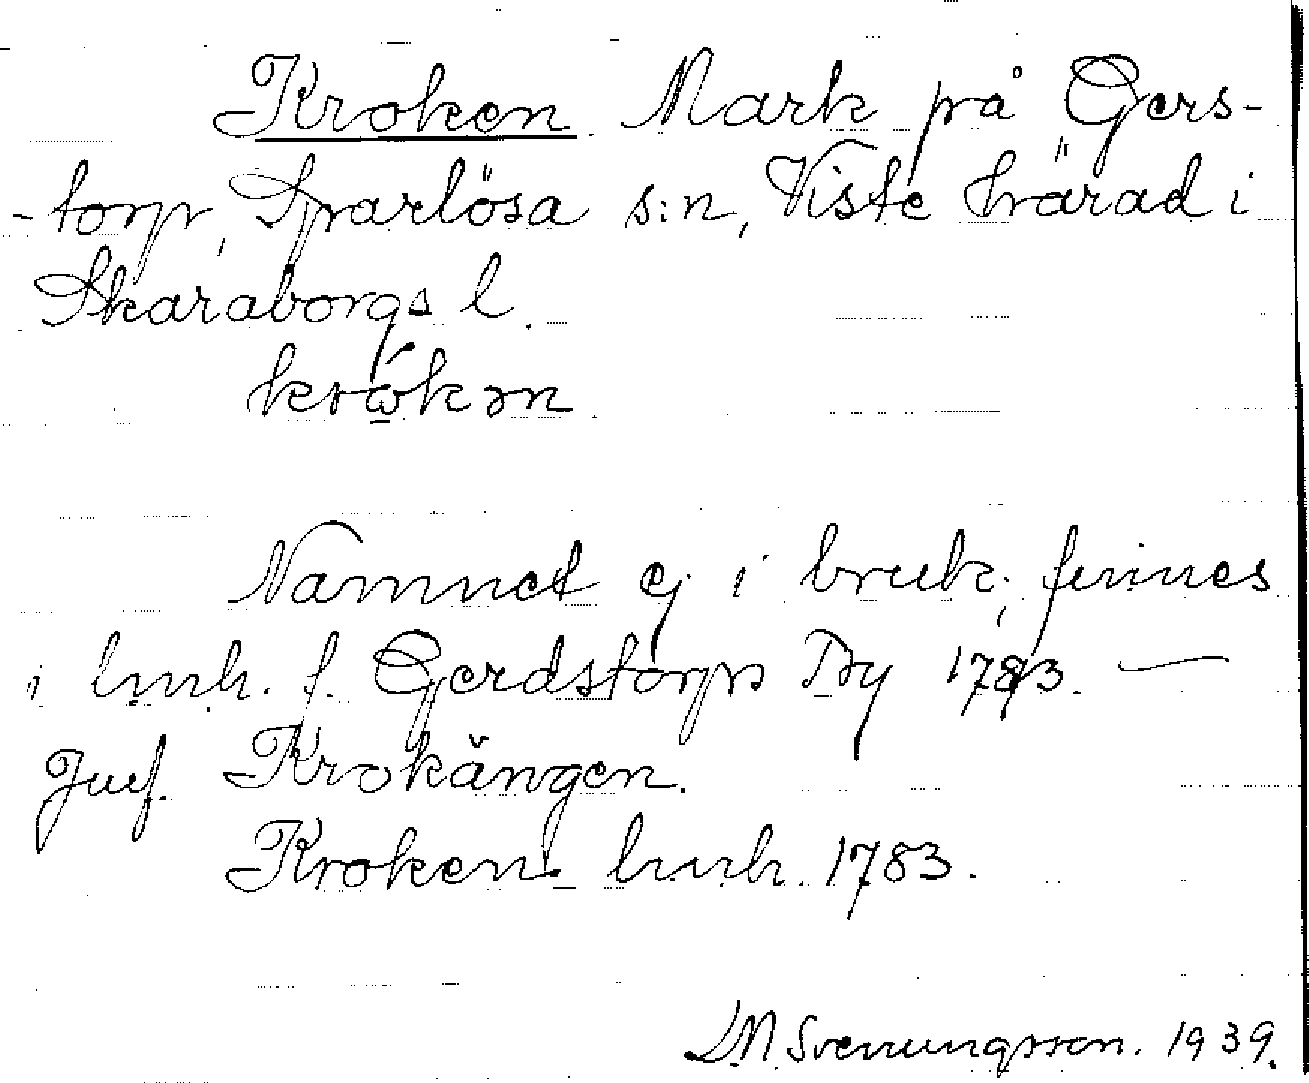 Kroken Mark på Gers-
-torp, Sparlösa s:n, Viste härad i
Skaraborgs l.
Namnet ej i bruk; finnes
i lmh. f. Gerdstorps By 1783. —
Jmf. Krokängen.
Kroken lmh. 1783.
LM Svenungsson. 1939.